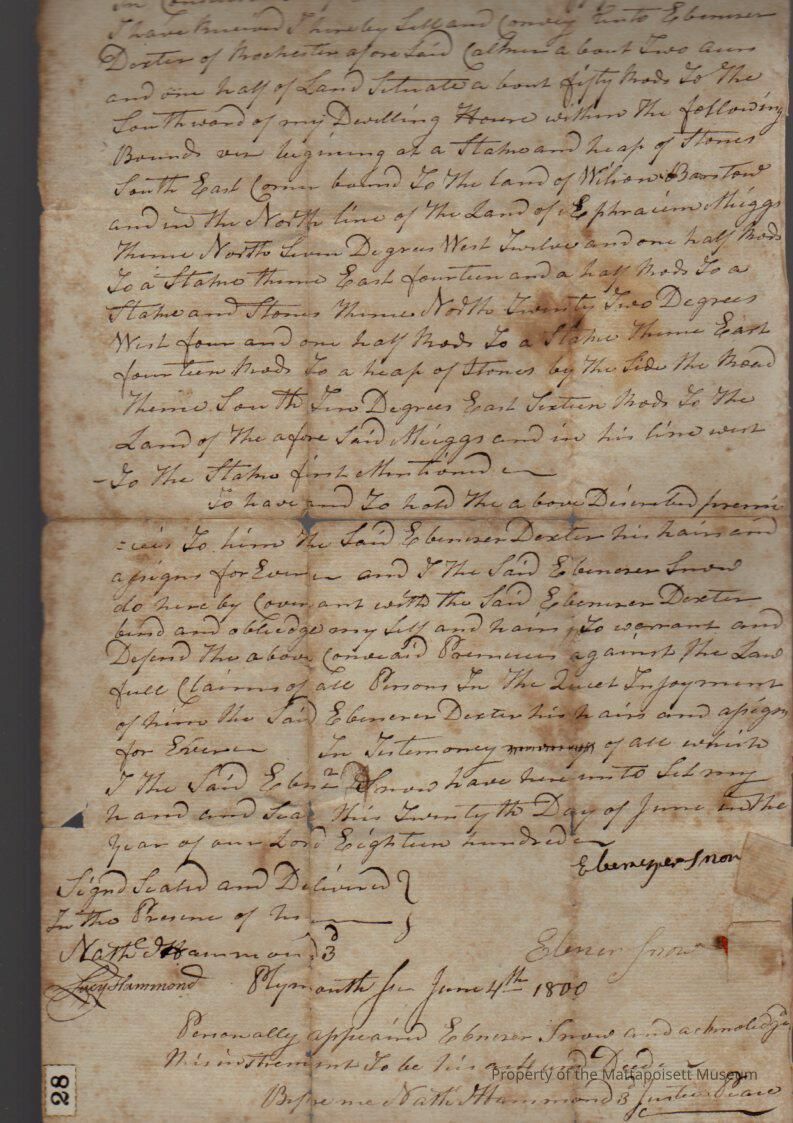 I have Received I hereby Sell and Convey unto Ebenezer
Dexter of Rochester afore Said a bout Two acers
and one half of Land Situate a bout fifty Rods To the
Southward of my Dwelling House within the following
Bounds begining at a Stake and heap of Stones
South East Corner bound To the land of Wilson Barstow
and in the North line of the Land of Ephraiem Meiggs
thence North Seven Degrees West Twelve and one half Rods
To a Stake thence East fourteen and a half Rods To a
Stake and Stones thence North Twenty Two Degrees
West four and one half Rods To a Stake thence East
fourteen Rods To a heap of Stones by the Side the Road
thence South Degrees East Sixteen Rods To the
Land of the afore Said Meiggs and in his line west
To the Stake first Mentioned
To have and To hold the a bove Discribed premi
=cies To him the Said Ebenezer Dexter his hairs and
assigns for Ever and I the Said Ebenezer Snow
do hereby Covenant with the Said Ebenezer Dexter
bind and obliedge my Self and hairs To warrant and
Defend the above Convead Premecies against the Law
full Claims of all Persons In the Quiet Injoyment
of him the Said Ebenezer Dexter his hairs and assigns
for Ever In Testemoney of all which
I the Said Ebenr Snow have here unto Set my
hand and Seal this Twentyth Day of June in the
year of our Lord Eighteen hundred
Ebenezer Snow
Signd Sealed and Delivered
In the Presence of us
Nathl Hammond 3d
Ebenezer Snow
Lucy Hammond Plymouth Ss June 4th 1800
Personally appeaired Ebenezer Snow and acknoledgd
this instrement To be his act and Deed
Before me Nathl Hammond 3d Justice Peace
28
Property of the Mattapoisett Museum